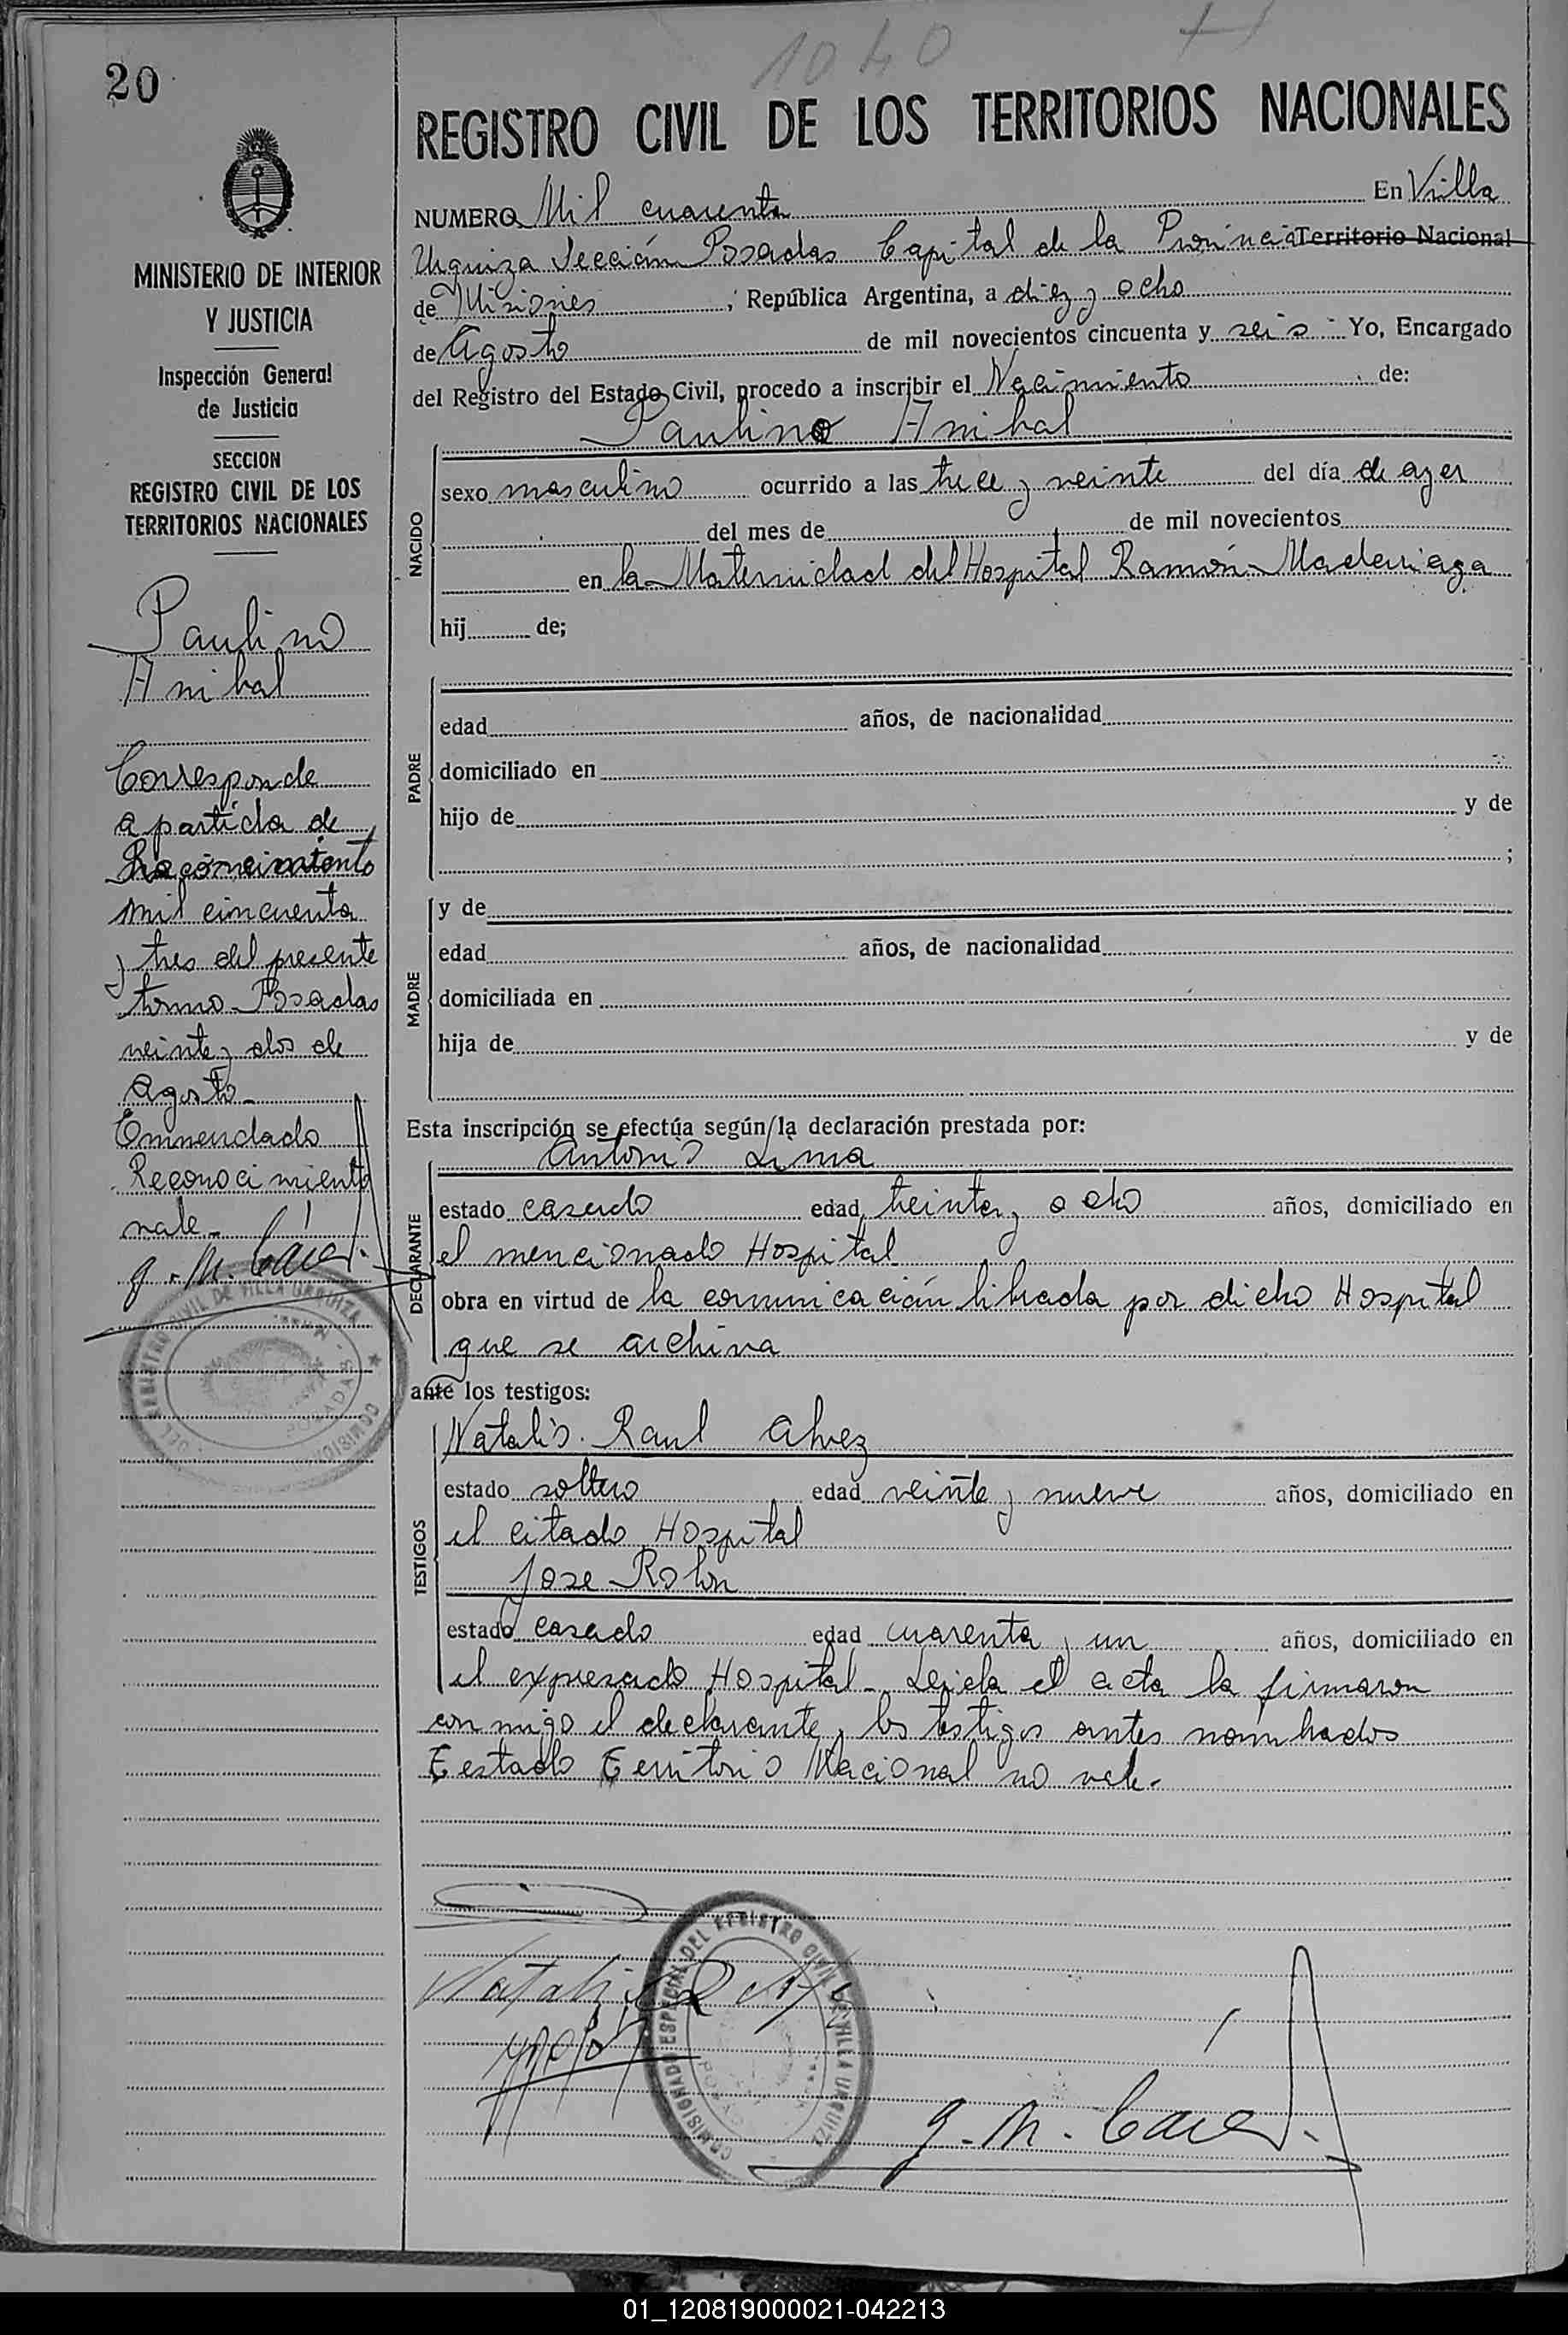 20
1040
REGISTRO CIVIL DE LOS TERRITORIOS NACIONALES
MINISTERIO DE INTERIOR
Y JUSTICIA
Inspección General
de Justicia
SECCION
REGISTRO CIVIL DE LOS
TERRITORIOS NACIONALES
Paulino
Anibal
Corresponde
a partida de
Reconocimiento
mil cincuenta
y tres del presente
tomo Posadas
veinte y dos de
Agosto
Enmendado
Reconocimiento
vale
COMISIONADO ESPECIAL DEL REGISTRO CIVIL DE VILLA URQUIZA
POSADAS
NUMERO Mil cuarenta En Villa
Urquiza Sección Posadas Capital de la Provincia Territorio Nacional
de Misiones, República Argentina, a diez y ocho
de Agosto de mil novecientos cincuenta y seis Yo, Encargado
del Registro del Estado Civil, procedo a inscribir el Nacimiento de:
Paulino Anibal
NACIDO
sexo masculino ocurrido a las trece y veinte del día de ayer
del mes de de mil novecientos
en la Maternidad del Hospital Ramón Madariaga
hij de;
PADRE
edad años, de nacionalidad
domiciliado en
hijo de y de
;
MADRE
y de
edad años, de nacionalidad
domiciliada en
hija de y de
Esta inscripción se efectúa según la declaración prestada por:
Antonio Lima
DECLARANTE
estado casado edad treinta y ocho años, domiciliado en
el mencionado Hospital
obra en virtud de la comunicación librada por dicho Hospital
que se archiva
ante los testigos:
Natalio Raul Alvez
TESTIGOS
estado soltero edad veinte y nueve años, domiciliado en
el citado Hospital
Jose Rolon
estado casado edad cuarenta y un años, domiciliado en
el expresado Hospital - Leida el acta la firmaron
conmigo el declarante y los testigos antes nombrados
Testado Territorio Nacional no vale.
COMISIONADO ESPECIAL DEL REGISTRO CIVIL DE VILLA URQUIZA
01_120819000021-042213